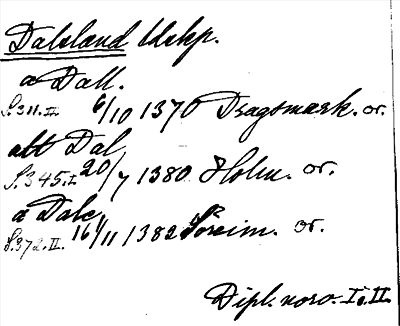 Dalsland Utskp.
a Dall.
S.311.II. 6/10 1370 Dragsmark. or.
att Dal
S.345.I. 20/7 1380 Holm. or.
a Dale
S.372.II. 16/11 1382 Soreim. or.
Dipl. norv. I o. II.